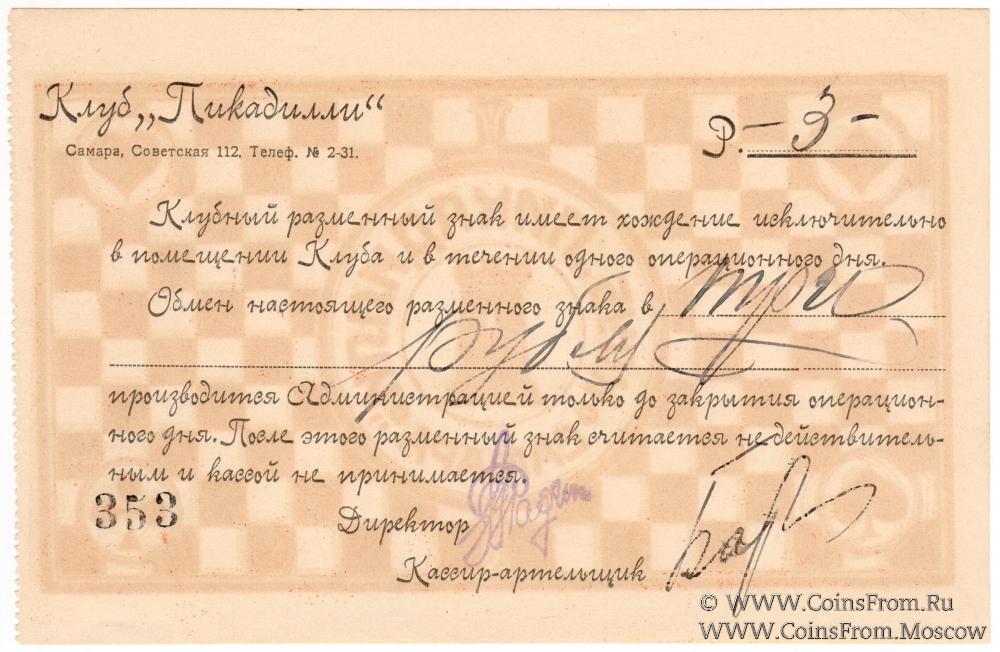 Клуб „Пикадилли“
Самара, Советская 112, Телеф. № 2-31.
Р. – 3 –
Клубный разменный знак имеет хождение исключительно
в помещении Клуба и в течении одного операционного дня.
Обмен настоящего разменного знака в три
рубля
производится Администрацией только до закрытия операцион-
ного дня. После этого разменный знак считается не действитель-
ным и кассой не принимается.
353
Директор
Кассир-артельщик
© WWW.CoinsFrom.Ru
WWW.CoinsFrom.Moscow